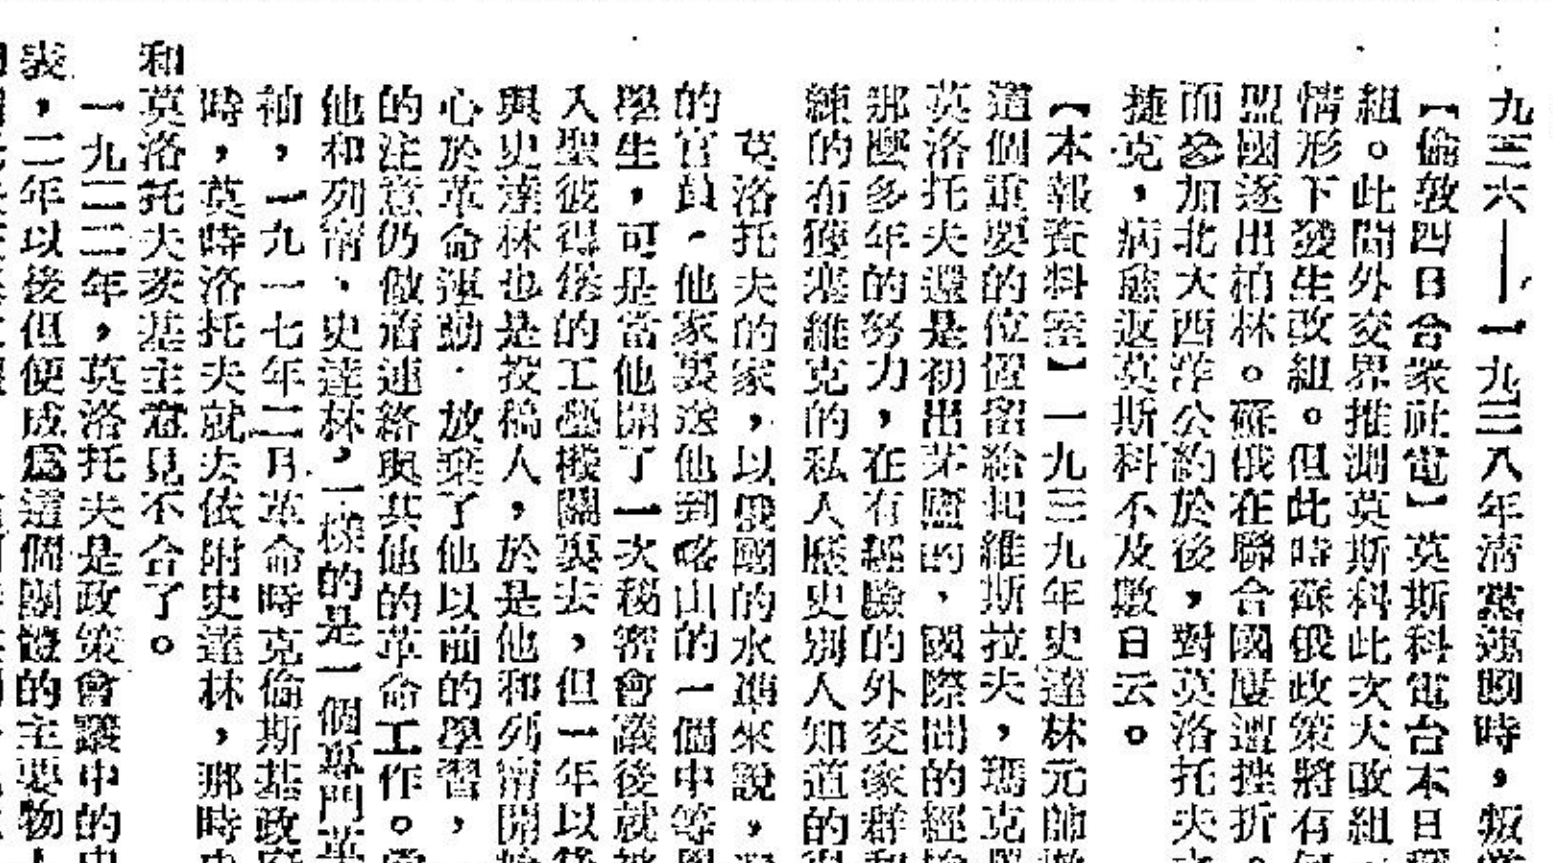 九三六——一九三八年清黨運動時，叛
【倫敦四日合衆社電】英斯科電台本日
組。此間外交界推測莫斯科此次大改組，
情形下發生改組。但此時蘇俄政策將有
盟國逐出柏林。蘇俄在聯合國屢遭挫折。
而參加北大西洋公約於後，對莫洛托夫
捷克，病愈返莫斯科不及數日云。
【本報資料室】一九三九年史達林元帥
這個重要的位置留給起維斯拉夫，瑪克
莫洛托夫還是初出茅廬的，國際間的經
那麼多年的努力，在有經驗的外交家群
練的布獲塞維克的私人歷史別人知道的
莫洛托夫的家，以俄國的水準來說，
的官員。他家裏送他到喀山的一個中等
學生，可是當他開了一次秘密會議後就被
入聖彼得堡的工藝機關裏去，但一年以後
與史達林也是投稿人，於是他和列甯開始
心於革命運動．放棄了他以前的學習，
的注意仍做着連絡與其他的革命工作。
他和列甯、史達林，一樣的是一個專門革
袖，一九一七年二月革命時克倫斯基政府
時，莫時洛托夫就去依附史達林，那時
和莫洛托夫茨基主意見不合了。
一九二二年，莫洛托夫是政策會議中的
表，二年以後但便成爲這個團體的主要物